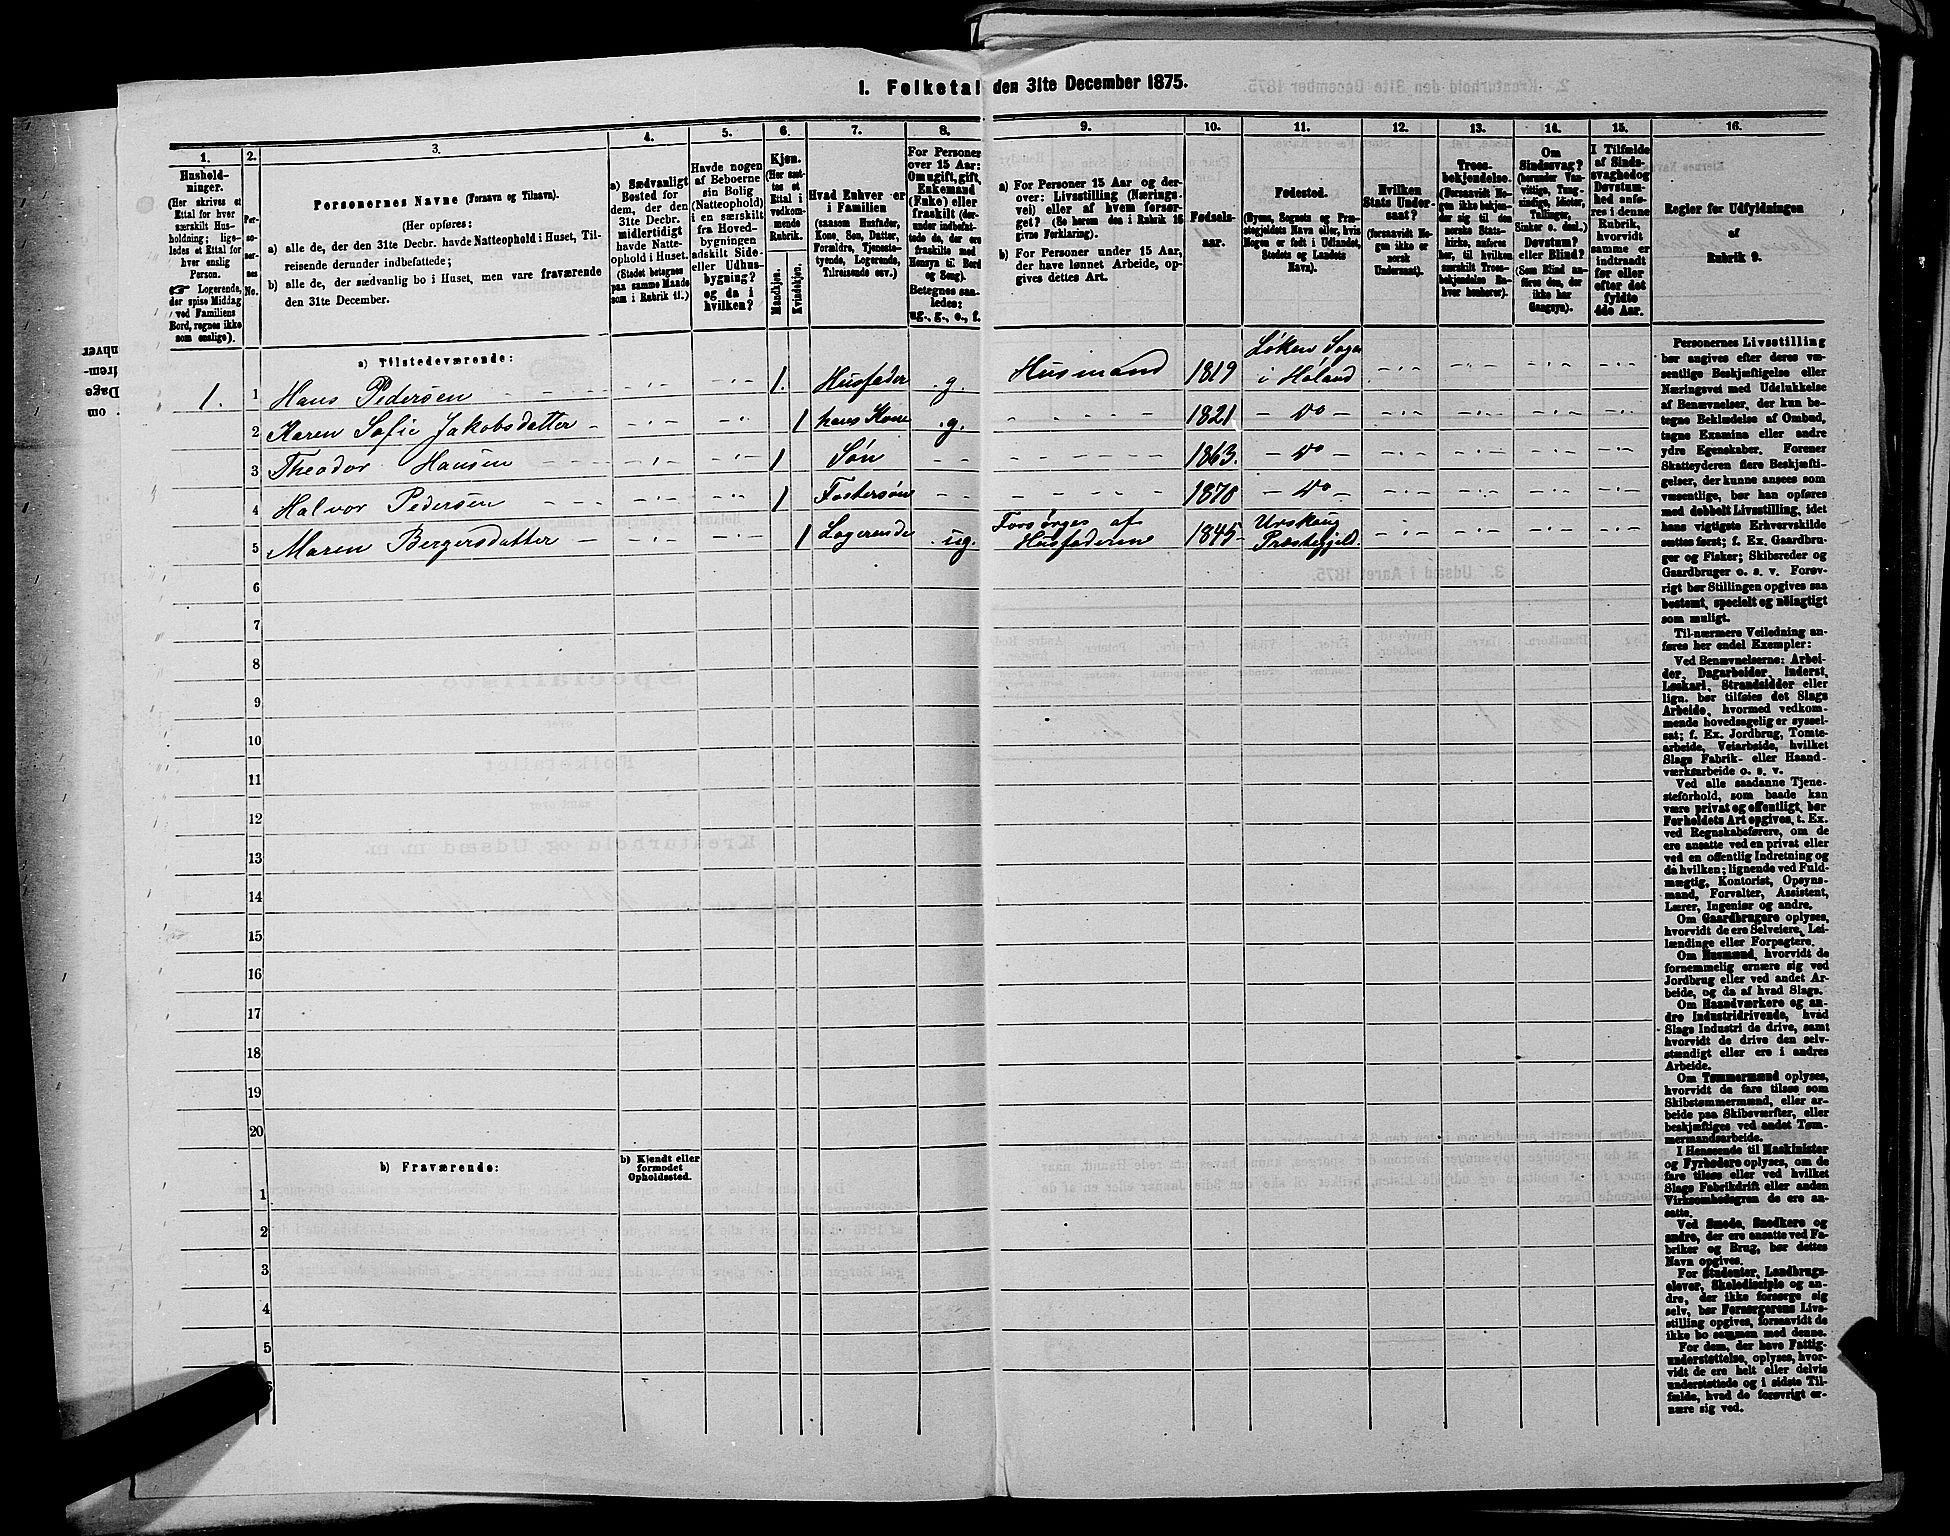 I. Folketal den 31te December 1875.
1. 2. 3. 4. 5. 6. 7. 8. 9. 10. 11. 12. 13. 14. 15. 16.
Hushold-
ninger.
(Her skrives et
Ettal for hver
særskilt Hus-
holdning; lige-
ledes et Ettal for
hver enslig
Person.
☛ Logerende,
der spise Middag
ved Familiens
Bord, regnes ikke
som enslige).
Per-
so-
ner-
nes
No.
Personernes Navne (Fornavn og Tilnavn).
(Her opføres:
a) alle de, der den 31te Decbr. havde Natteophold i Huset, Til-
reisende derunder indbefattede;
b) alle de, der sædvanlig bo i Huset, men vare fraværende
den 31te December.
a) Sædvanligt
Bosted for
dem, der den
31te Decbr.
midlertidigt
havde Natte-
ophold i Huset.
(Stedet betegnes
paa samme Maade
som i Rubrik 11.)
Havde nogen
af Beboerne
sin Bolig
(Natteophold)
i en særskilt
fra Hoved-
bygningen
adskilt Side-
eller Udhus-
bygning?
og da i
hvilken?
Kjøn.
(Her sæt-
tes et
Ettal i
vedkom-
mende
Rubrik.
Mandkjøn.
Kvindekjøn.
Hvad Enhver er
i Familien
(saasom Husfader,
Kone, Søn, Datter,
Forældre, Tjeneste-
tyende, Logerende,
Tilreisende osv.)
For Personer
over 15 Aar:
Om ugift, gift,
Enkemand
(Enke) eller
fraskilt (der-
under indbefat-
tede de, der ere
fraskilte med
Hensyn til Bord
og Seng).
Betegnes saa-
ledes:
ug., g., e., f.
a) For Personer 15 Aar og der-
over: Livsstilling (Nærings-
vei) eller af hvem forsør-
get? (Se herom den i Rubrik 16
givne Forklaring).
b) For Personer under 15 Aar,
der have lønnet Arbeide, op-
gives dettes Art.
Fødsels-
aar.
Fødested.
(Byens, Sognets og Præ-
stegjeldets Navn eller, hvis
Nogen er født i Udlandet,
Stedets og Landets
Navn).
Hvilken
Stats Under-
saat?
(forsaavidt No-
gen ikke er
norsk
Undersaat).
Troes-
bekjendelse.
(Forsaavidt No-
gen ikke bekjen-
der sig til den
norske Stats-
kirke, anføres
her, til hvilken
særskilt Troes-
bekjendelse En-
hver henhører).
Om
Sindssvag?
(herunder Van-
vittige, Tung-
sindige, Idioter,
Tullinger,
Sinker o. desl.)
Døvstum?
eller Blind?
(Som Blind an-
føres den, der
ikke har
Gangsyn).
I Tilfælde
af Sinds-
svaghed og
Døvstum-
hed anfø-
res i denne
Rubrik,
hvorvidt
samme er
indtraadt
før eller
efter det
fyldte
4de Aar.
Regler for Udfyldningen
af
Rubrik 9.
a) Tilstedeværende:
1. 1 Hans Pedersen 1. Husfader g. Husmand 1819 Løken Sogn i Høland
2 Karen Sofie Jakobsdatter 1 hans Kone g. 1821 do
3 Theodor Hansen 1 Søn 1863. do
4 Halvor Pedersen 1 Fostersøn 1870 do
5 Maren Bergersdatter 1 Logerende ug. Forsørges af Husfaderen 1845 Urskoug Præstegjeld.
6
7
8
9
10
11
12
13
14
15
16
17
18
19
20
b) Fraværende:
b) Kjendt eller
formodet
Opholdssted.
1
2
3
4
5
6
Personernes Livsstilling
bør angives efter deres væ-
sentlige Beskjæftigelse eller
Næringsvei med Udelukkelse
af Benævnelser, der kun be-
tegne Beklædelse af Ombud,
tagne Examina eller andre
ydre Egenskaber. Forener
Skatteyderen flere Beskjæfti-
gelser, der kunne ansees som
væsentlige, bør han opføres
med dobbelt Livsstilling, idet
hans vigtigste Erhvervskilde
sættes først; f. Ex. Gaardbru-
ger og Fisker; Skibsreder og
Gaardbruger o. s. v. Forøv-
rigt bør Stillingen opgives saa
bestemt, specielt og nøiagtigt
som muligt.
Til nærmere Veiledning an-
føres her endel Exempler:
Ved Benævnelserne: Arbei-
der, Dagarbeider, Inderst,
Løskarl, Strandsidder eller
lign. bør tilføies det Slags
Arbeide, hvormed vedkom-
mende hovedsagelig er syssel-
sat; f. Ex. Jordbrug, Tomte-
arbeide, Veiarbeide, hvilket
Slags Fabrik- eller Haand-
værksarbeide o. s. v.
Ved alle saadanne Tjene-
steforhold, som baade kan
være privat og offentligt, bør
Forholdets Art opgives, t. Ex.
ved Regnskabsførere, om de
ere ansatte ved en privat eller
ved en offentlig Indretning og
da hvilken; lignende ved Fuld-
mægtig, Kontorist, Opsyns-
mand, Forvalter, Assistent,
Lærer, Ingeniør og andre.
Om Gaardbrugere oplyses,
hvorvidt de ere Selveiere, Lei-
lændinge eller Forpagtere.
Om Husmænd, hvorvidt de
fornemmelig ernære sig ved
Jordbrug eller ved andet Ar-
beide, og da af hvad Slags.
Om Haandværkere og an-
dre Industridrivende, hvad
Slags Industri de drive, samt
hvorvidt de drive den selv-
stændigt eller ere i andres
Arbeide.
Om Tømmermænd oplyses,
hvorvidt de fare tilsøs som
Skibstømmermænd, eller ar-
beide paa Skibsværfter, eller
beskjæftiges ved andet Tøm-
mermandsarbeide.
I Henseende til Maskinister
og Fyrbødere oplyses, om de
fare tilsøs eller ved hvilket
Slags Fabrikdrift eller anden
Virksomhed de ere an-
satte.
Ved Smede, Snedkere og
andre, der ere ansatte ved Fa-
briker og Brug, bør dettes
Navn opgives.
For Studenter, Landbrugs-
elever, Skoledisciple og an-
dre, der ikke forsørge sig
selv, bør Forsørgerens Livs-
stilling opgives, forsaavidt de
ikke bo sammen med denne.
For dem, der have Fattig-
understøttelse, oplyses, hvor-
vidt de ere helt eller delvis
understøttede og i sidste Til-
fælde, hvad de forøvrigt er-
nære sig ved.